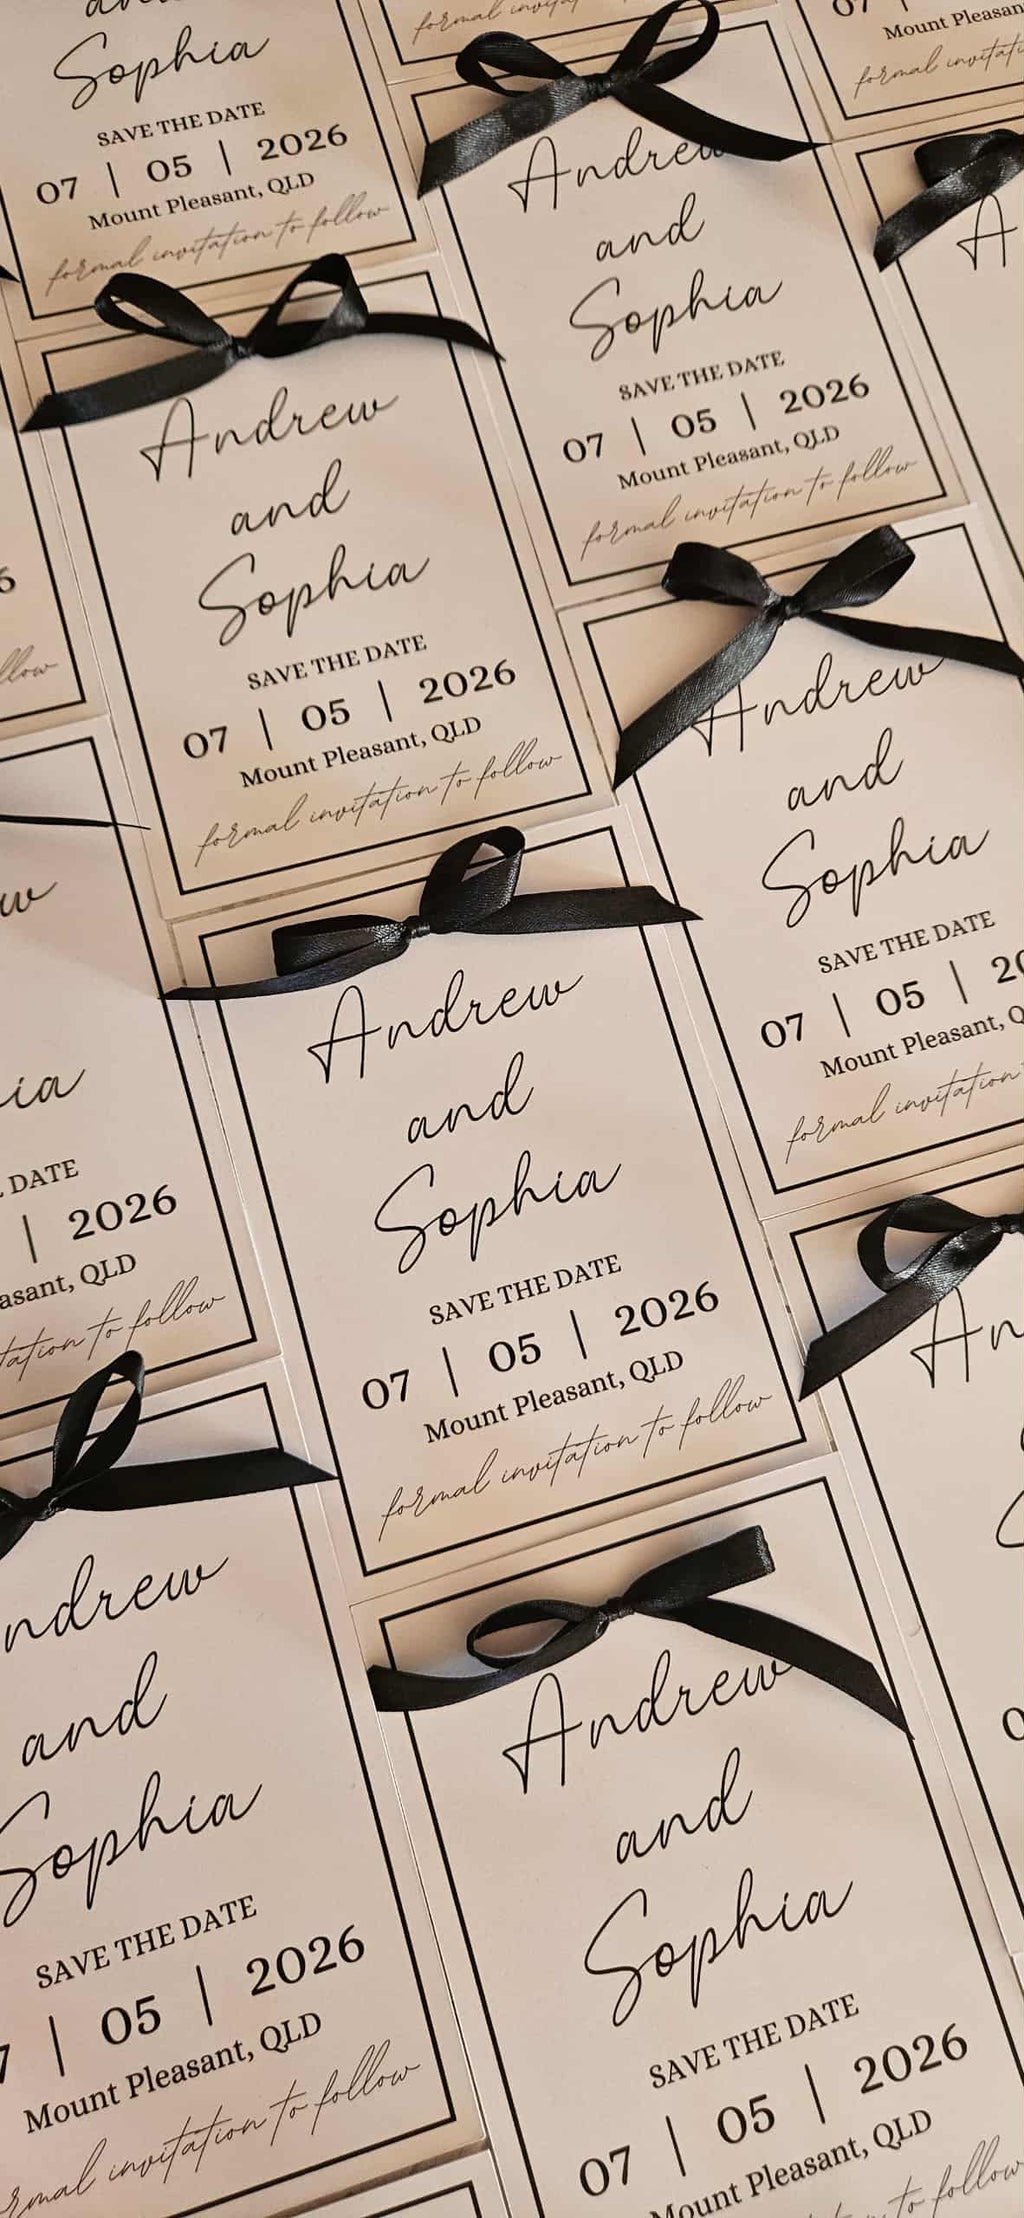 Sophia
SAVE THE DATE
07 | 05 | 2026
Mount Pleasant, QLD
formal invitation to follow
Andrew
and
Sophia
SAVE THE DATE
07 | 05 | 2026
Mount Pleasant, QLD
formal invitation to follow
Andrew
and
Sophia
SAVE THE DATE
07 | 05 | 2026
Mount Pleasant, QLD
formal invitation to follow
Andrew
and
Sophia
SAVE THE DATE
07 | 05
Mount Pleasant,
formal invitation
DATE
| 2026
QLD
to follow
Andrew
and
Sophia
SAVE THE DATE
07 | 05 | 2026
Mount Pleasant, QLD
formal invitation to follow
ndrew
and
Sophia
SAVE THE DATE
7 | 05 | 2026
Mount Pleasant, QLD
invitation to follow
Andrew
and
Sophia
SAVE THE DATE
07 | 05 | 2026
Mount Pleasant, QLD
to follow